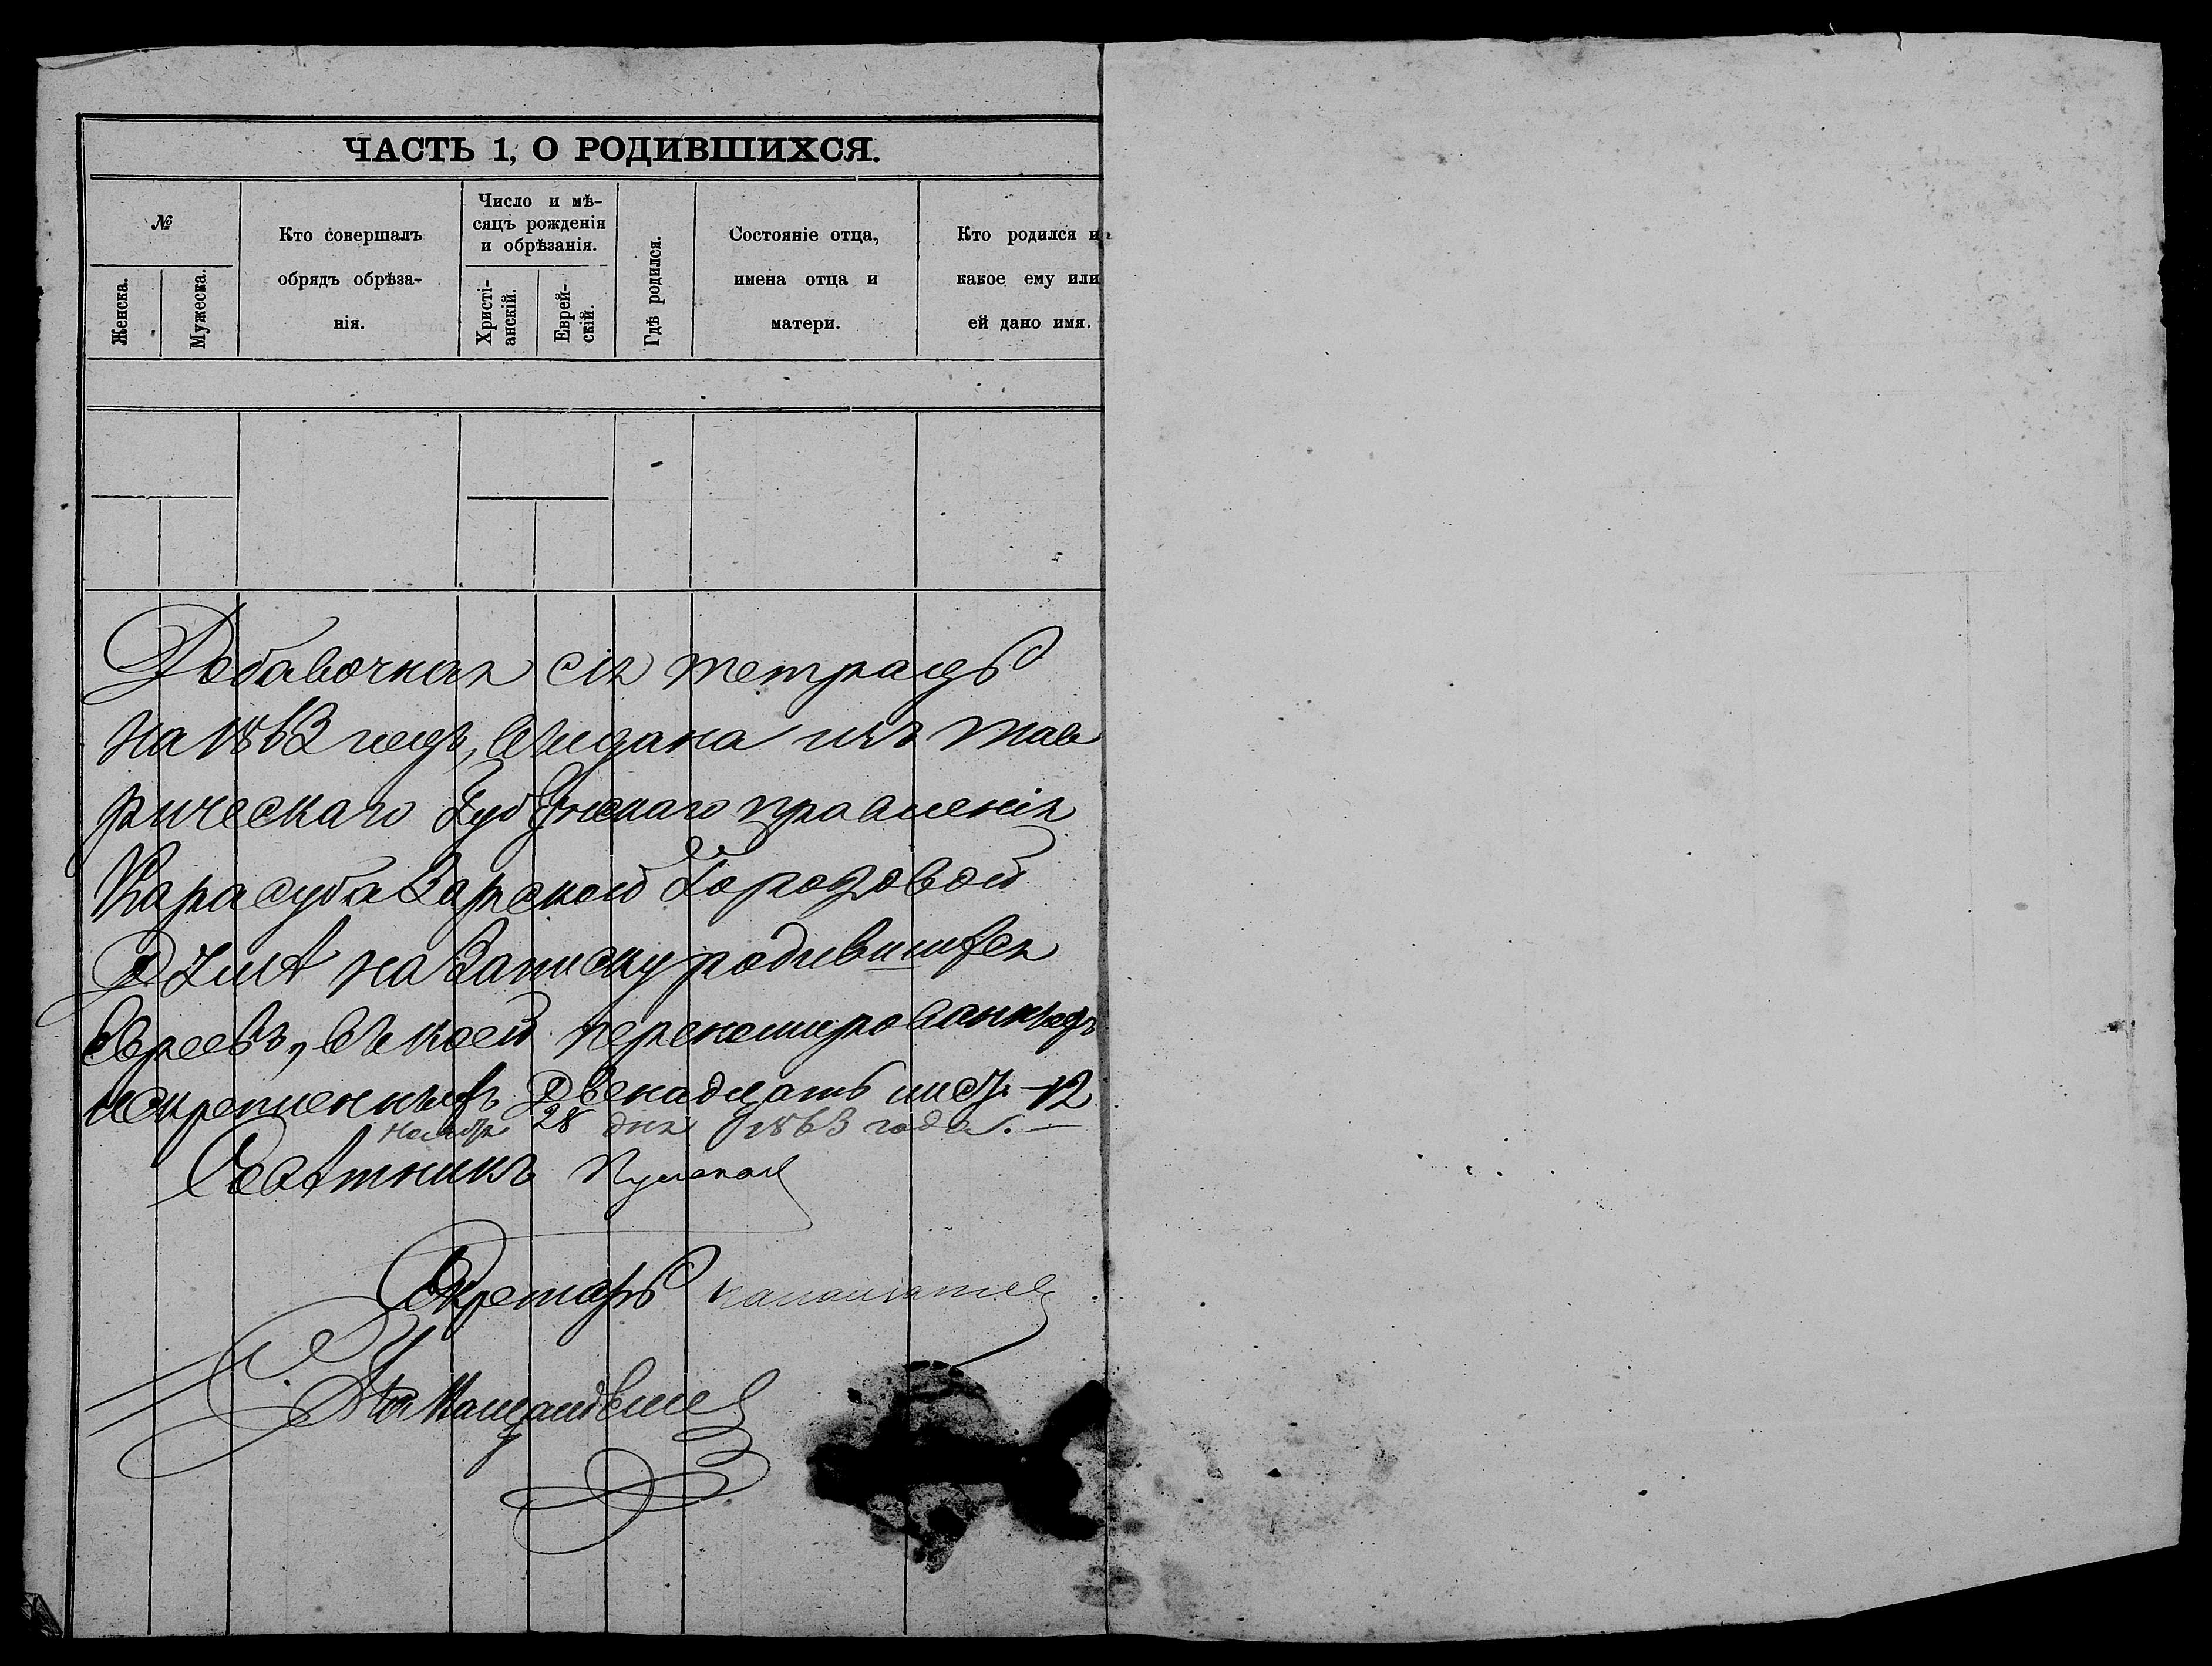 ЧАСТЬ 1, О РОДИВШИХСЯ.
№
Женска.
Мужеска.
Кто совершалъ
обрядъ обрѣза-
нія.
Число и мѣ-
сяцъ рожденія
и обрѣзанія.
Христі-
анскій.
Еврей-
скій.
Гдѣ родился.
Состояніе отца,
имена отца и
матери.
Кто родился и
какое ему или
ей дано имя.
Добавочная сія тетрадь
на 1863 годъ, выдана изъ Тав
рическаго Губернскаго правленія
Карасубазарской Городовой
Думѣ на записку родившихся
Евреевъ, въ коей
Двенадцать лист. 12
Ноября 28 дня 1863 года.
Советникъ
Секретарь